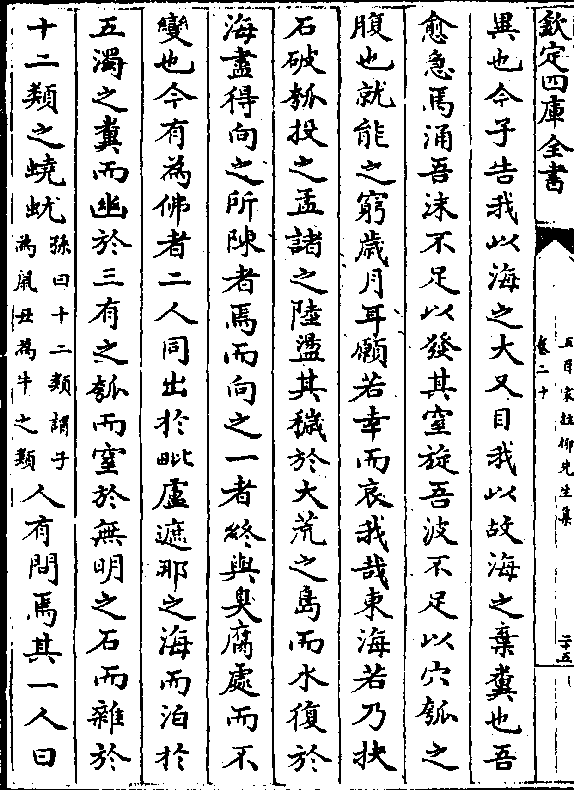 欽定四庫全書
五百家註柳先生集
卷二十
二十五
異也今子告我以海之大又目我以故海之棄糞也吾
愈急焉涌吾沫不足以發其窒旋吾波不足以穴瓠之
腹也就能之窮歲月耳願若幸而哀我哉東海若乃抉
石破瓠投之孟諸之陸盪其穢於大荒之島而水復於
海盡得向之所陳者焉而向之一者終與臭腐處而不
變也今有為佛者二人同出於毗盧遮那之海而泊於
五濁之糞而幽於三有之瓠而窒於無明之石而雜於
十二類之蟯蚘
孫曰十二類謂子
為鼠丑為牛之類
人有問焉其一人曰